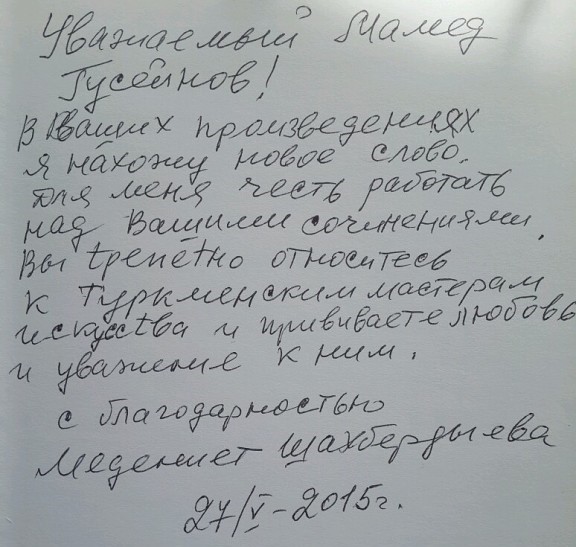 Уважаемый Мамед
Гусейнов!
В Ваших произведениях
я нахожу новое слово.
Для меня честь работать
над Вашими сочинениями.
Вы трепетно относитесь
к Туркменским мастерам
искусства и прививаете любовь
и уважение к ним.
С благодарностью
Медениет Шахбердыева
27/V-2015г.